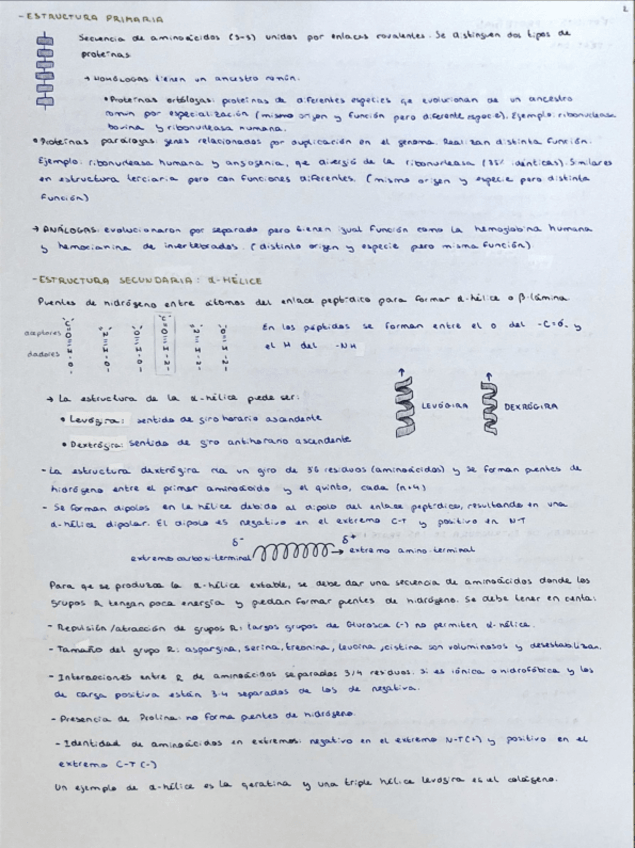 2
- ESTRUCTURA PRIMARIA
Secuencia de aminoácidos (S-S) unidos por enlaces covalentes. Se distinguen dos tipos de
proteínas
→ HOMÓLOGAS: tienen un ancestro común.
• Proteínas ortólogas: proteínas de diferentes especies qe evolucionan de un ancestro
común por especialización (mismo origen y función pero diferente especie). Ejemplo: ribonucleasa
bovina y ribonucleasa humana.
• Proteínas parálogas: genes relacionados por duplicación en el genoma. Realizan distinta función.
Ejemplo: ribonucleasa humana y angogenia, qe divergió de la ribonucleasa (35% idénticas). Similares
en estructura terciaria pero con funciones diferentes. (mismo origen y especie pero distinta
función)
→ ANÁLOGAS: evolucionaron por separado pero tienen igual función como la hemoglobina humana
y hemocianina de invertebrados. (distinto origen y especie pero misma función)
- ESTRUCTURA SECUNDARIA: α-HÉLICE
Puentes de hidrógeno entre átomos del enlace peptídico para formar α-hélice o β-lámina.
aceptores
dadores
En los péptidos se forman entre el O del -C=O, y
el H del -NH
→ La estructura de la α-hélice puede ser:
• Levógira: sentido de giro horario ascendente
• Dextrógira: sentido de giro antihorario ascendente
LEVÓGIRA
DEXTRÓGIRA
- La estructura dextrógira da un giro de 36 residuos (aminoácidos) y se forman puentes de
hidrógeno entre el primer aminoácido y el quinto, cada (n+4)
- Se forman dipolos en la hélice debido al dipolo del enlace peptídico, resultando en una
α-hélice dipolar. El dipolo es negativo en el extremo C-T y positivo en N-T
δ- δ+
extremo carbox-terminal → extremo amino-terminal
Para qe se produzca la α-hélice estable, se debe dar una secuencia de aminoácidos donde los
grupos R tengan poca energía y puedan formar puentes de hidrógeno. Se debe tener en cuenta:
- Repulsión/atracción de grupos R: largos grupos de (-) no permiten α-hélice.
- Tamaño del grupo R: aspargina, serina, treonina, leucina, cistina son voluminosos y desestabilizan.
- Interacciones entre R de aminoácidos separados 3/4 residuos. Si es iónica o hidrofóbica y los
de carga positiva están 3-4 separados de los de negativa.
- Presencia de Prolina: no forma puentes de hidrógeno.
- Identidad de aminoácidos en extremos: negativo en el extremo N-T(+) y positivo en el
extremo C-T (-)
Un ejemplo de α-hélice es la qeratina y una triple hélice levógira es el colágeno.